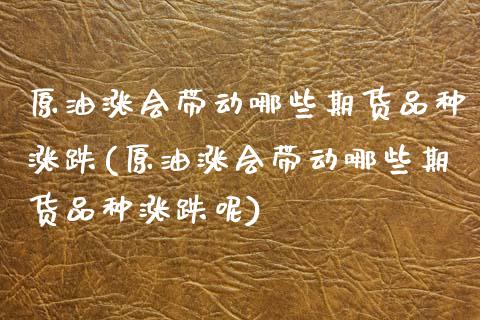 原油涨会带动哪些期货品种
涨跌(原油涨会带动哪些期
货品种涨跌呢)